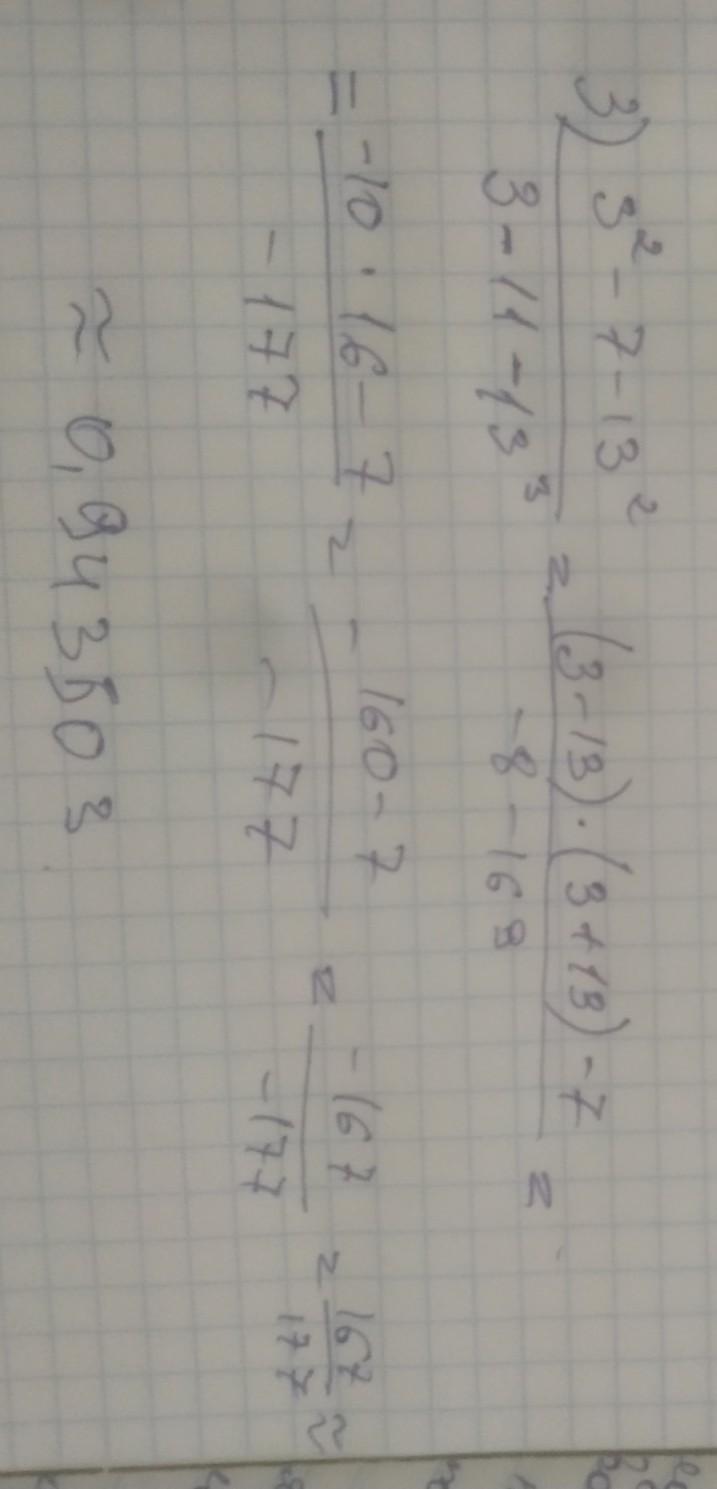 3) (3² - 7 - 13²)/(3 - 11 - 13³) = ((3 - 13) · (3 + 13) - 7)/(-8 - 168) =
= (-10 · 16 - 7)/(-177) = (-160 - 7)/(-177) = (-167)/(-177) = 167/177 ≈
≈ 0,943503